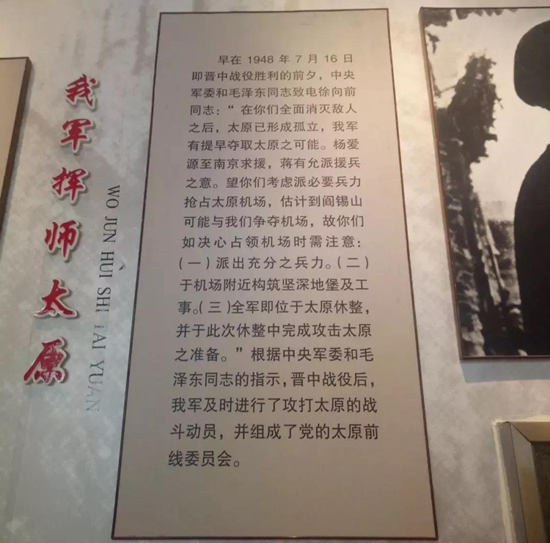 我军挥师太原
WO JUN HUI SHI TAI YUAN
早在1948年7月16日
即晋中战役胜利的前夕，中央
军委和毛泽东同志致电徐向前
同志：“在你们全面消灭敌人
之后，太原已形成孤立，我军
有提早夺取太原之可能。杨爱
源至南京求援，蒋有允派援兵
之意。望你们考虑派必要兵力
抢占太原机场，估计到阎锡山
可能与我们争夺机场，故你们
如决心占领机场时需注意：
（一）派出充分之兵力。（二）
于机场附近构筑坚深地堡及工
事。（三）全军即位于太原休整，
并于此次休整中完成攻击太原
之准备。”根据中央军委和毛
泽东同志的指示，晋中战役后，
我军及时进行了攻打太原的战
斗动员，并组成了党的太原前
线委员会。